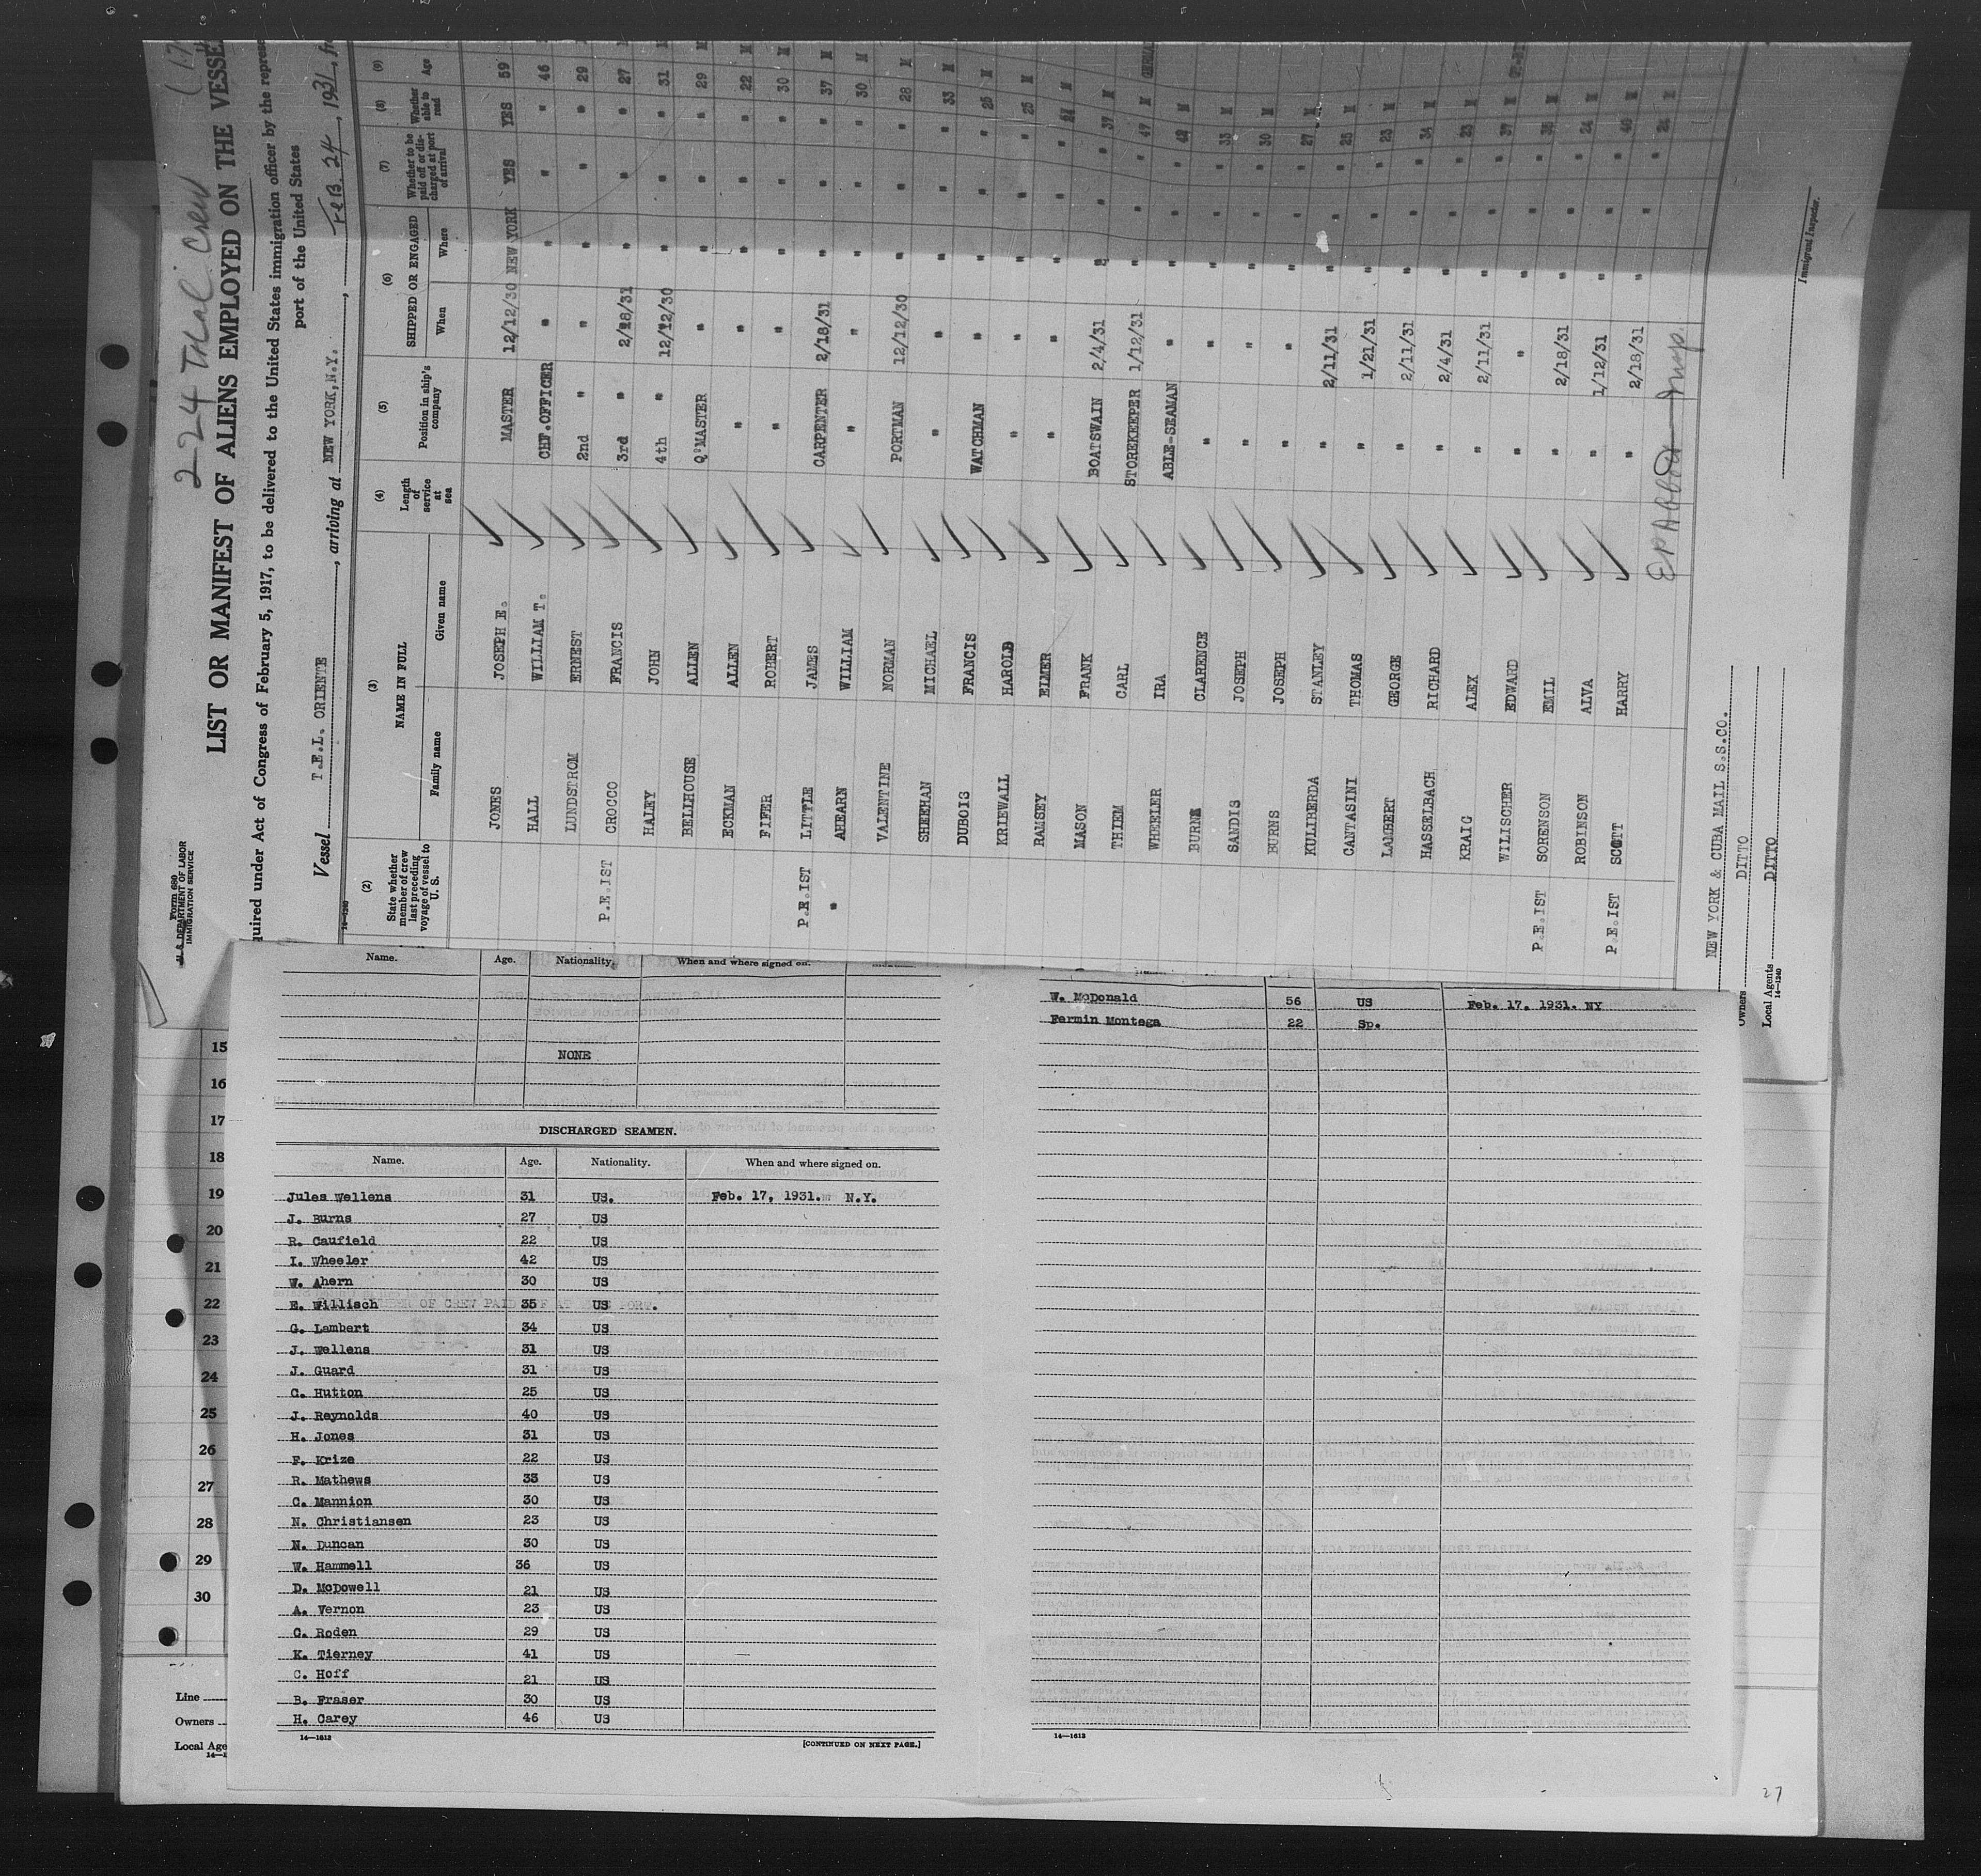 2-24 Thal. Crew
Form 680
U. S. DEPARTMENT OF LABOR
IMMIGRATION SERVICE
LIST OR MANIFEST OF ALIENS EMPLOYED ON THE VESSE
quired under Act of Congress of February 5, 1917, to be delivered to the United States immigration officer by the represe
port of the United States
Vessel T.E.L. ORIENTE, arriving at NEW YORK, N.Y., FEB. 24, 1931, fr
14-1240
(2) (3) (4) (5) (6) (7) (8) (9)
State whether member of crew last preceding voyage of vessel to U. S.
NAME IN FULL
Family name Given name
Length of service at sea
Position in ship's company
SHIPPED OR ENGAGED
When Where
Whether to be paid off or discharged at port of arrival
Whether able to read
Age
JONES JOSEPH E. MASTER 12/12/30 NEW YORK YES YES 59
HALL WILLIAM T. CHF.OFFICER " " " " 46
LUNDSTROM ERNEST 2nd " " " " " 29
P.E.IST CROCCO FRANCIS 3rd " 2/18/31 " " " 27
HALEY JOHN 4th " 12/12/30 " " " 31
BELLHOUSE ALLEN Q'MASTER " " " " 29 M
ECKMAN ALLEN " " " " " 22 M
FIFER ROBERT " " " " 30 M
P.E.IST LITTLE JAMES CARPENTER 2/18/31 " " " 37 M
" AHEARN WILLIAM " " " " " 30 M
VALENTINE NORMAN PORTMAN 12/12/30 " " " 28 M
SHEEHAN MICHAEL " " " " " 33 M
DUBOIS FRANCIS WATCHMAN " " " " 25 M
KRIEWALL HAROLD " " " " " 25 M
RAMSEY ELMER " " " " M
MASON FRANK BOATSWAIN 2/4/31 " " " 37 M
THIEM CARL STOREKEEPER 1/12/31 " " " 47 M
WHEELER IRA ABLE-SEAMAN " " " " 42 M
BURNE CLARENCE " " " " " 33 M
SANDIS JOSEPH " " " " " 30 M
BURNS JOSEPH " " " " " 27 M
KULIBERDA STANLEY " 2/11/31 " " " 25 M
CANTASINI THOMAS " 1/21/31 " " " 23 M
LAMBERT GEORGE " 2/11/31 " " " 34 M
HASSELBACH RICHARD " 2/4/31 " " " 23 M
KRAIG ALEX " 2/11/31 " " " 37 M
WILISCHER EDWARD " " " " " M
P.E.IST SORENSON EMIL " 2/18/31 " " " 24 M
ROBINSON ALVA " 1/12/31 " " " 40 M
P.E.IST SCOTT HARRY " 2/18/31 " " " 24 M
NEW YORK & CUBA MAIL S.S.CO.
Owners DITTO
Local Agents DITTO
14-1240
Immigrant Inspector.
Name. Age. Nationality. When and where signed on.
NONE
DISCHARGED SEAMEN.
Name. Age. Nationality. When and where signed on.
Jules Wellens 31 US. Feb. 17, 1931. N.Y.
J. Burns 27 US
R. Caufield 22 US
I. Wheeler 42 US
W. Ahern 30 US
E. Willisch 35 US
G. Lambert 34 US
J. Wellens 31 US
J. Guard 31 US
C. Hutton 25 US
J. Reynolds 40 US
H. Jones 31 US
F. Krize 22 US
R. Mathews 33 US
C. Mannion 30 US
N. Christiansen 23 US
N. Duncan 30 US
W. Hammell 36 US
D. McDowell 21 US
A. Vernon 23 US
C. Roden 29 US
K. Tierney 41 US
C. Hoff 21 US
B. Fraser 30 US
H. Carey 46 US
14-1613
[CONTINUED ON NEXT PAGE.]
W. McDonald 56 US Feb. 17, 1931. NY
Fermin Montega 22 Sp.
14-1613
15
16
17
18
19
20
21
22
23
24
25
26
27
28
29
30
Line
Owners
Local Age
27